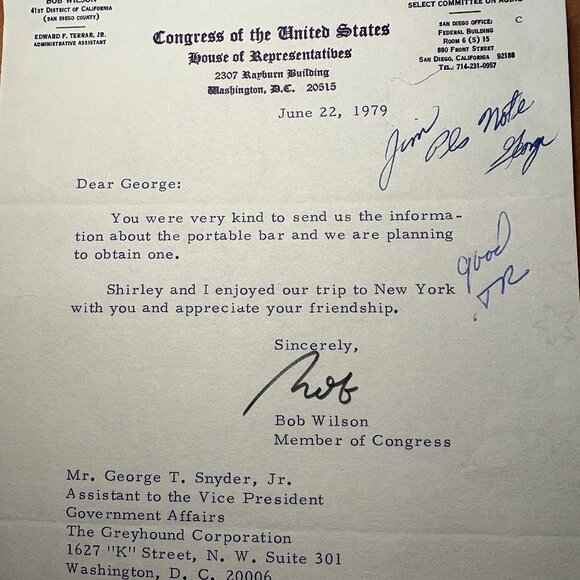 BOB WILSON
41ST DISTRICT OF CALIFORNIA
(SAN DIEGO COUNTY)
EDWARD F. TERRAR, JR.
ADMINISTRATIVE ASSISTANT
Congress of the United States
House of Representatives
2307 Rayburn Building
Washington, D.C. 20515
SELECT COMMITTEE ON AGING
SAN DIEGO OFFICE:
FEDERAL BUILDING
ROOM 6 (S) 15
880 FRONT STREET
SAN DIEGO, CALIFORNIA 92188
TEL.: 714-231-0957
C
June 22, 1979
Jim
Pls Note
George
Dear George:
You were very kind to send us the informa-
tion about the portable bar and we are planning
to obtain one.
good
JR
Shirley and I enjoyed our trip to New York
with you and appreciate your friendship.
Sincerely,
Bob
Bob Wilson
Member of Congress
Mr. George T. Snyder, Jr.
Assistant to the Vice President
Government Affairs
The Greyhound Corporation
1627 "K" Street, N. W. Suite 301
Washington, D. C. 20006